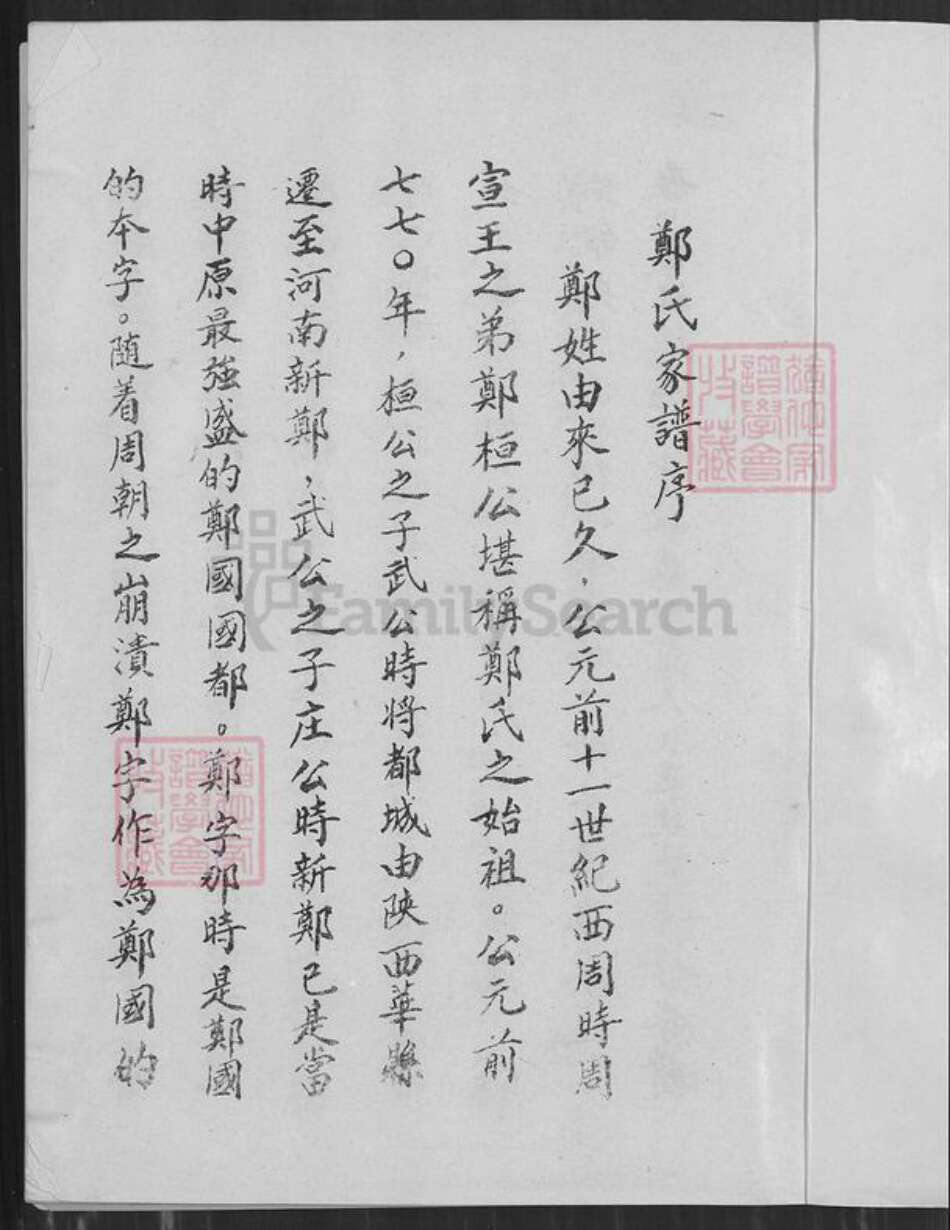 鄭氏家譜序
鄭姓由來已久，公元前十一世紀西周時周
宣王之弟鄭桓公堪稱鄭氏之始祖。公元前
七七〇年，桓公之子武公時将都城由陝西華縣
遷至河南新鄭，武公之子庄公時新鄭已是當
時中原最強盛的鄭國國都。鄭字那時是鄭國
的本字。随着周朝之崩潰鄭字作為鄭國的
FamilySearch
譜學會
收藏
譜學會
收藏